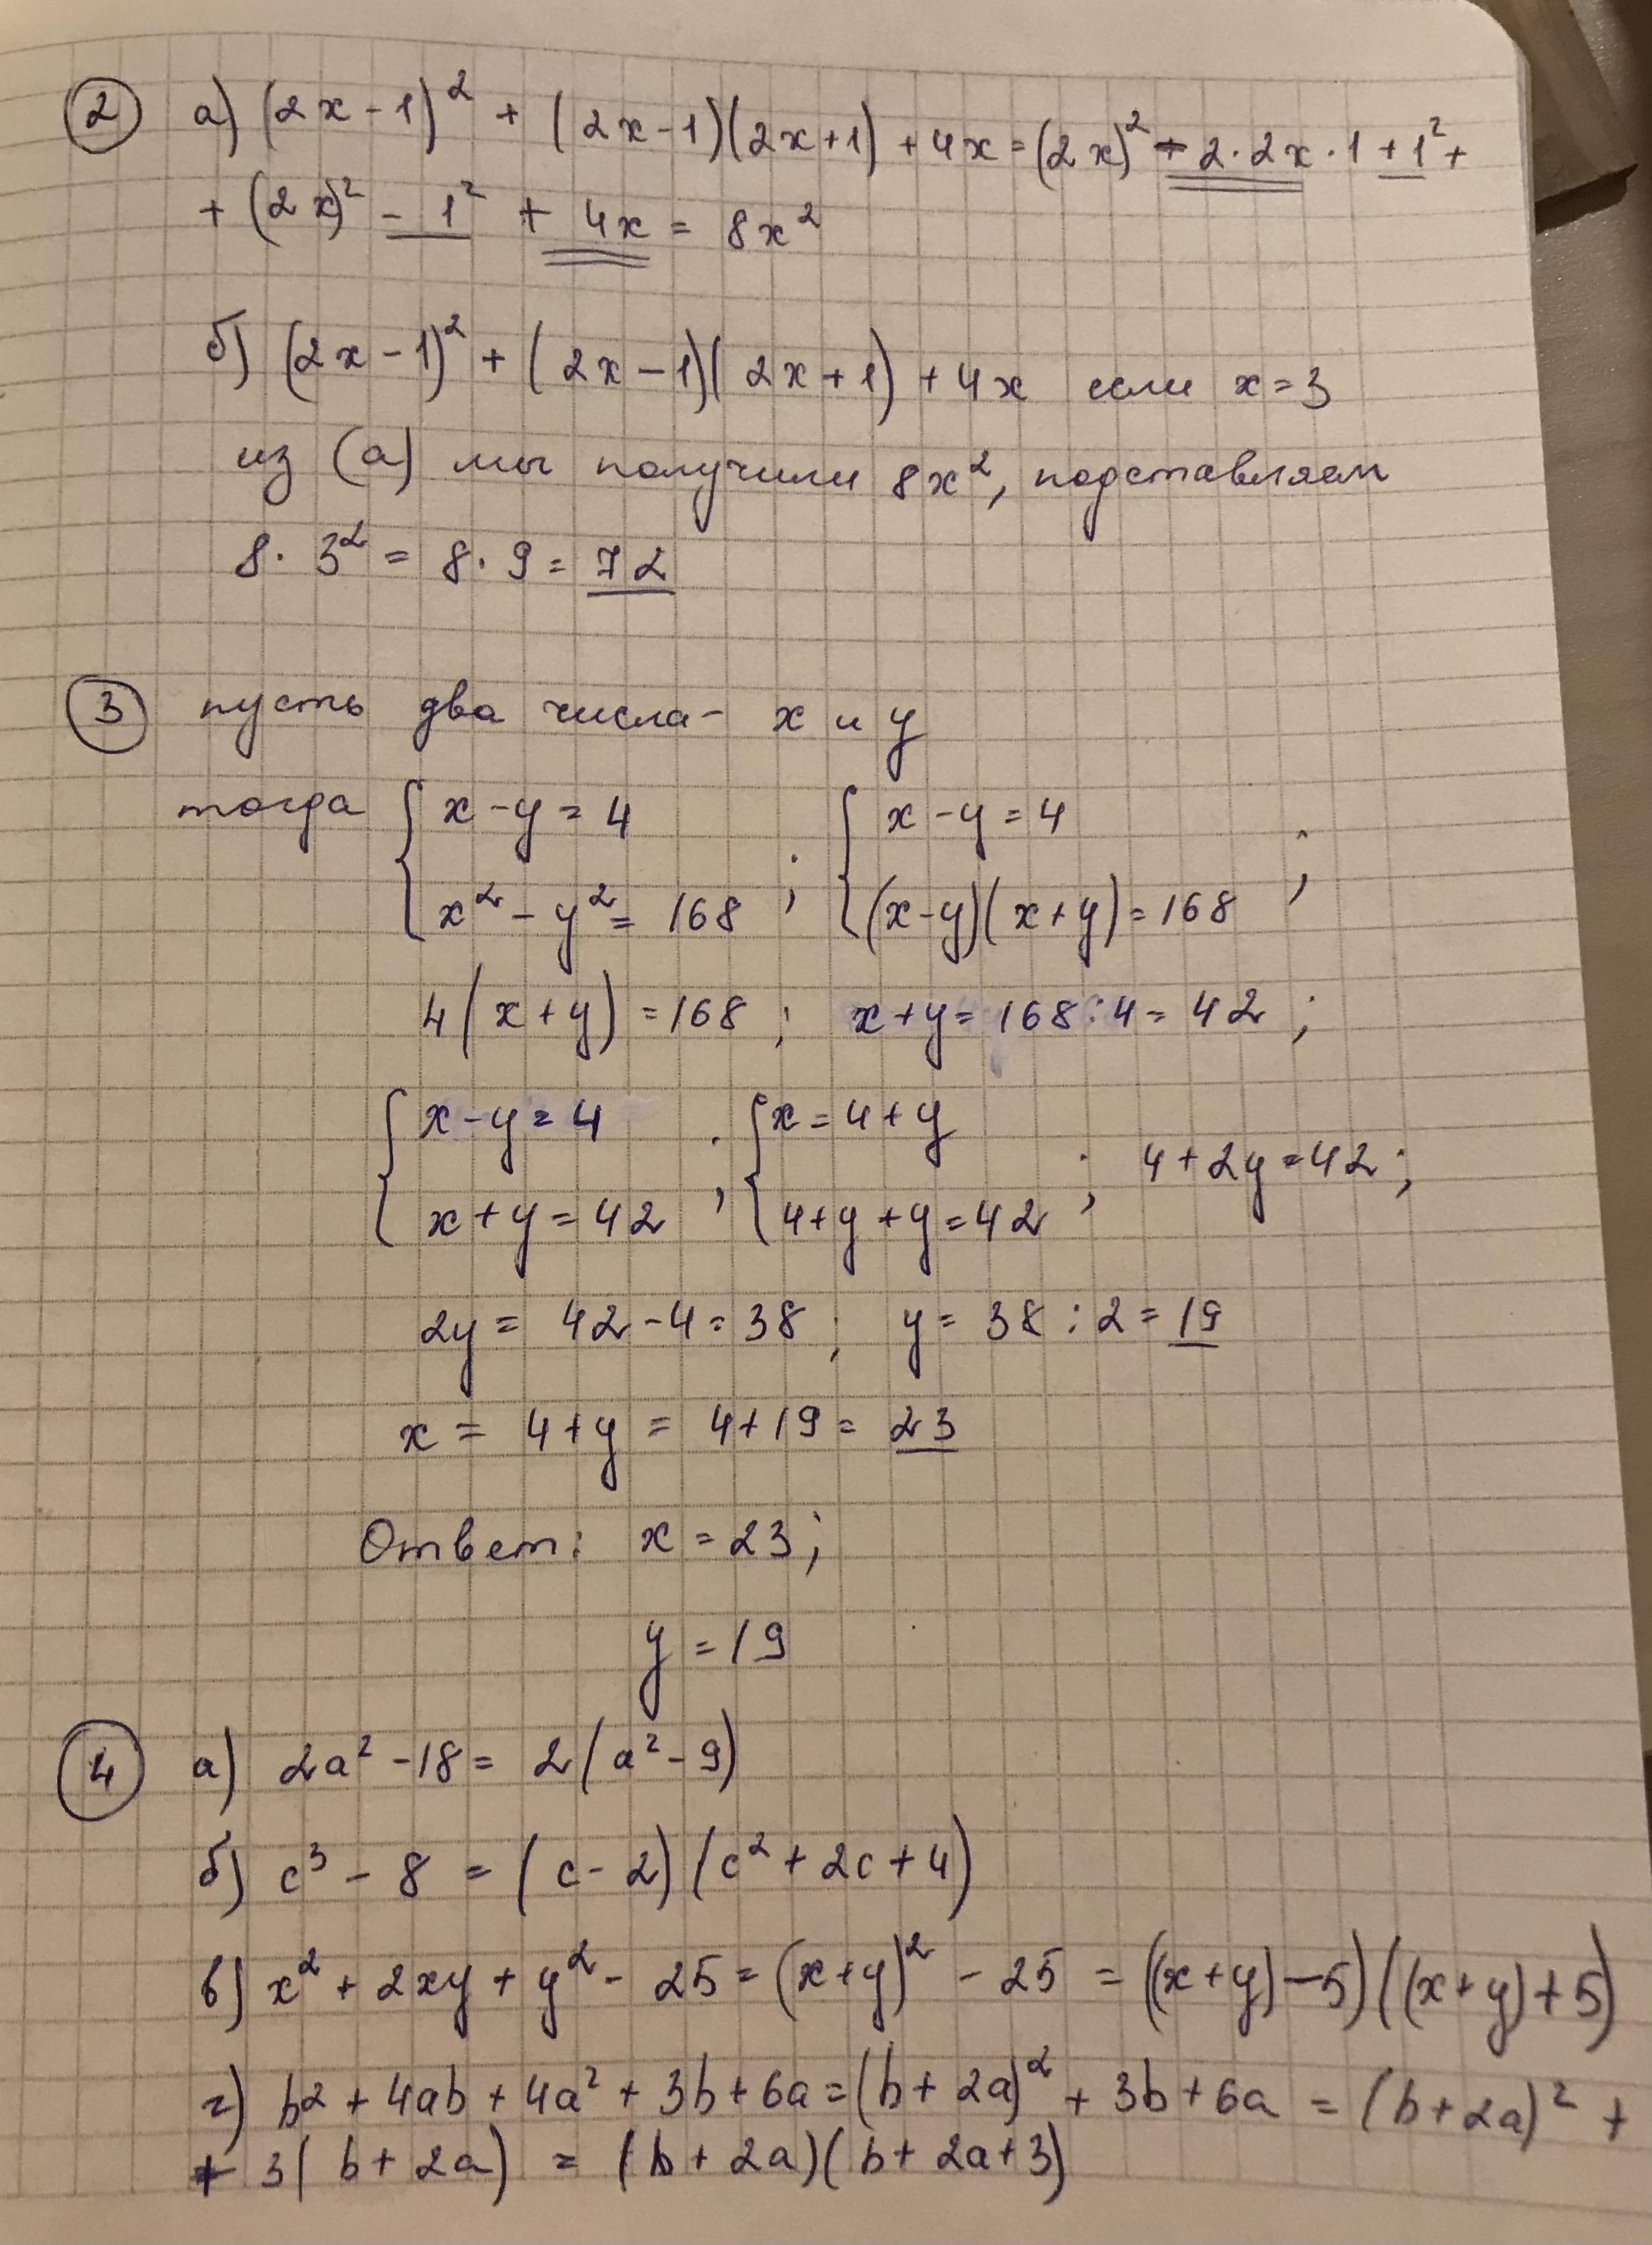 ② а) (2x-1)² + (2x-1)(2x+1) + 4x = (2x)² - 2·2x·1 + 1² +
+ (2x)² - 1² + 4x = 8x²
б) (2x-1)² + (2x-1)(2x+1) + 4x если x=3
из (а) мы получили 8x², подставляем
8·3² = 8·9 = 72
③ пусть два числа - x и y
тогда { x-y=4 ; { x-y=4 ;
x²-y²=168 (x-y)(x+y)=168
4(x+y)=168 ; x+y=168:4=42 ;
{ x-y=4 ; { x=4+y ; 4+2y=42;
x+y=42 4+y+y=42
2y = 42-4=38 ; y= 38:2=19
x = 4+y = 4+19= 23
Ответ: x=23;
y=19
④ а) 2a²-18= 2(a²-9)
б) c³-8 = (c-2)(c²+2c+4)
в) x²+2xy+y²-25=(x+y)²-25 = ((x+y)-5)((x+y)+5)
г) b²+4ab+4a²+3b+6a=(b+2a)²+3b+6a = (b+2a)² +
+ 3(b+2a) = (b+2a)(b+2a+3)